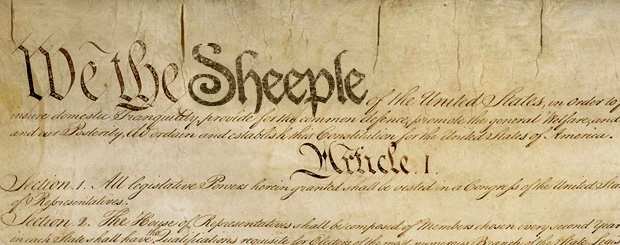 We the Sheeple of the United States, in order to f
insure domestic Tranquility, provide for the common defence, promote the general Welfare, and
and our Posterity, do ordain and establish this Constitution for the United States of America.
Article. I.
Section. 1. All legislative Powers herein granted shall be vested in a Congress of the United Stat
of Representatives.
Section. 2. The House of Representatives shall be composed of Members chosen every second Year
in each State shall have the Qualifications requisite for Electors of the most numerous Branch of the State